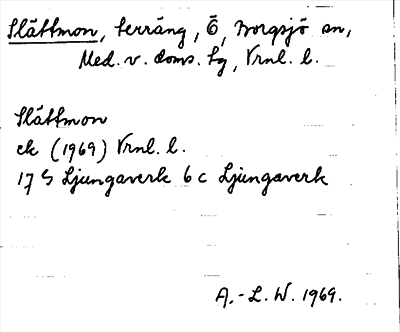 Slättmon, terräng, Ö, Borgsjö sn,
Med. v. doms. tg, Vrnl. l.
Slättmon
ek (1969) Vrnl. l.
17 G Ljungaverk 6 c Ljungaverk
A.-L. W. 1969.